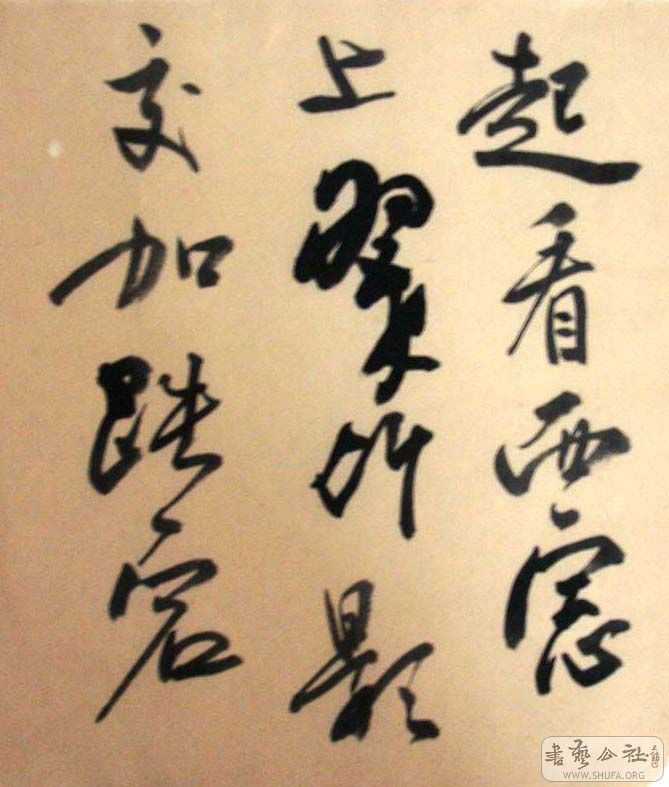 起看西窗
上翠竹影
交加踈宕
書藝公社
WWW.SHUFA.ORG